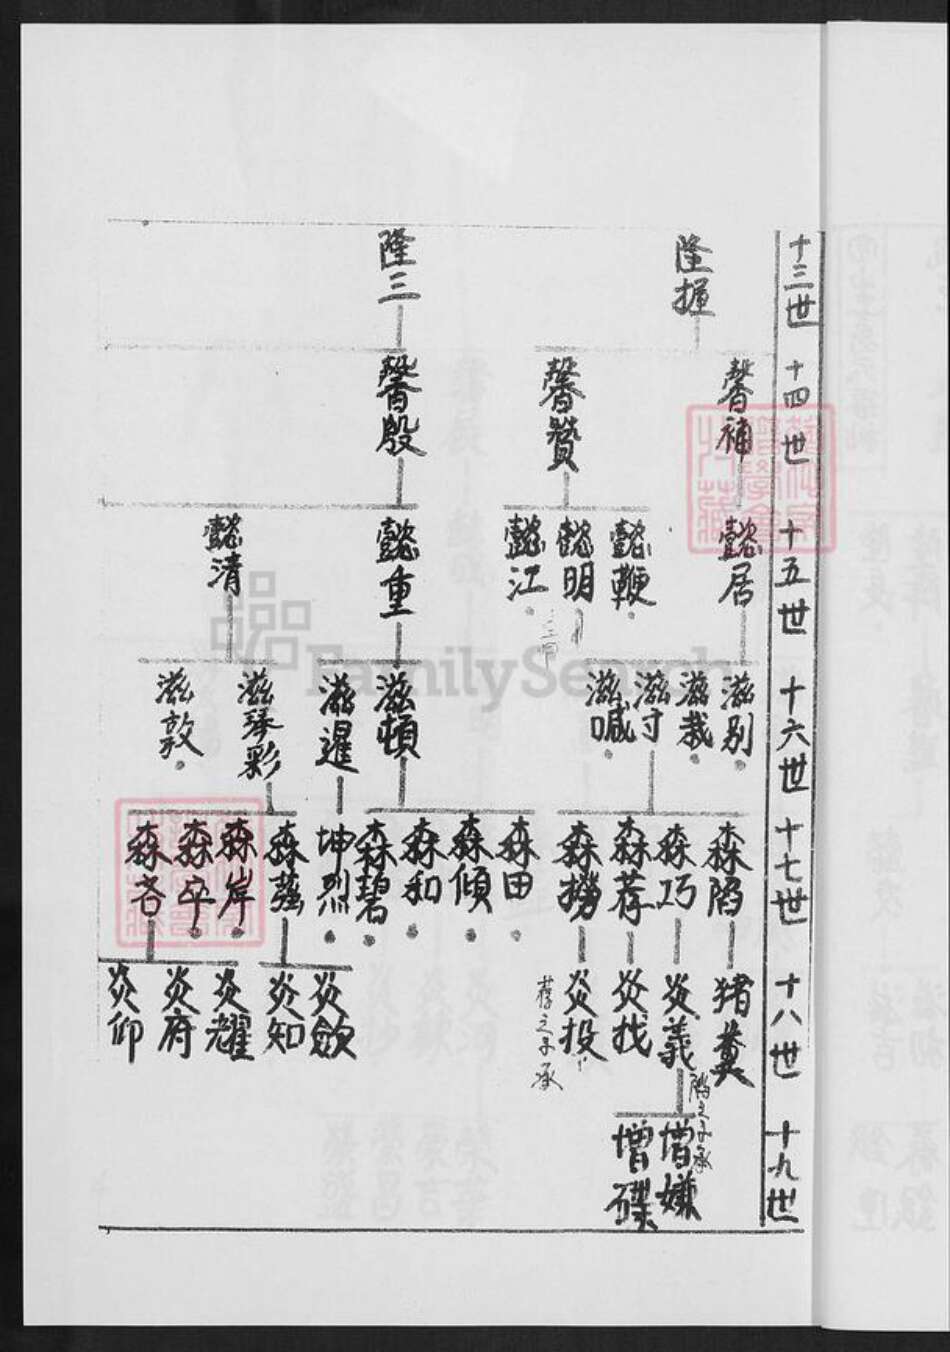 十三世
隆握
隆三
十四世
馨補
馨贊
馨殷
十五世
懿居
懿鞭
懿明
懿江
懿重
懿清
十六世
滋別
滋栽
滋寸
滋喊
滋頓
滋暹
滋琴彩
滋敦
十七世
森陷
森巧
森荐
森撈
森田
森傾
森和
森碧
坤烈
森強
森岸
森卒
森吝
十八世
猪糞
炎義
炎找
炎投
荐之子承
炎歛
炎知
炎耀
炎府
炎仰
十九世
陷之子承
增嫌
增磔
FamilySearch